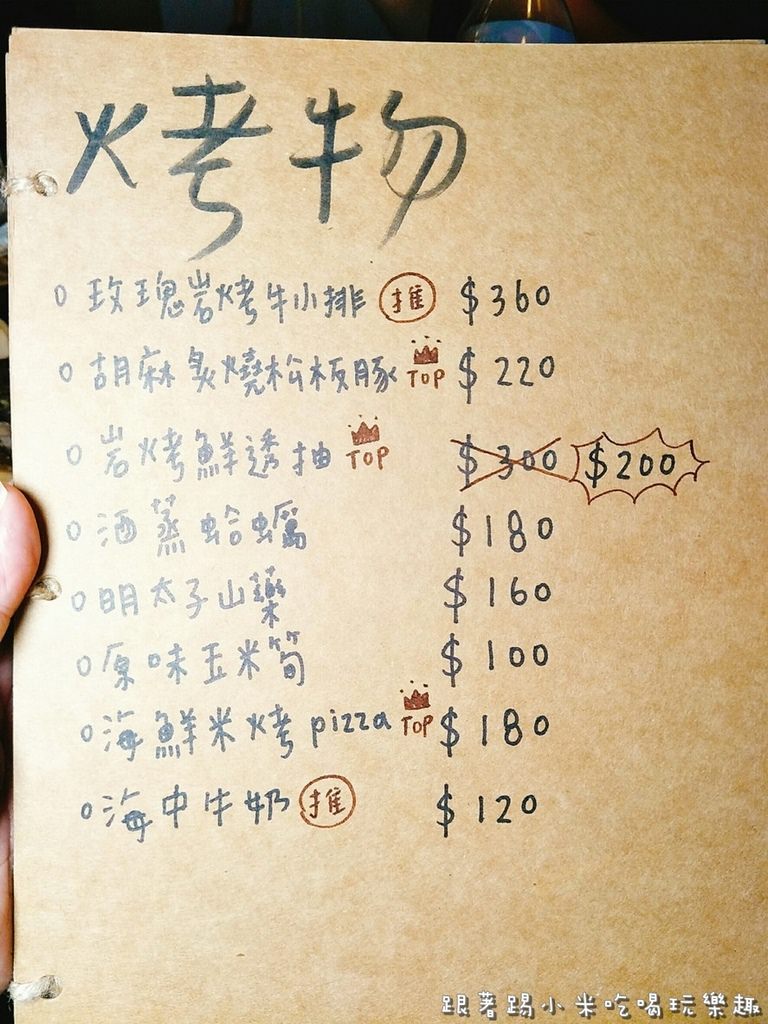 烤物
玫瑰岩烤牛小排 推 $360
胡麻炙燒松板豚 TOP $220
岩烤鮮透抽 TOP $300 $200
酒蒸蛤蠣 $180
明太子山藥 $160
原味玉米筍 $100
海鮮米烤pizza TOP $180
海中牛奶 推 $120
跟著踢小米吃喝玩樂趣